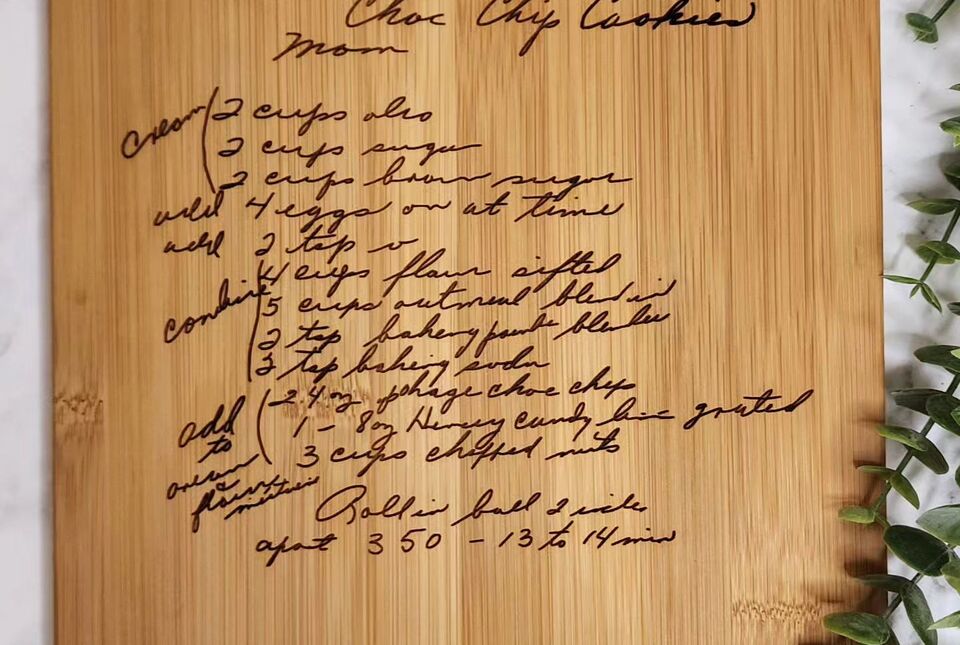 Choc Chip Cookies
Mom
cream
2 cups oleo
2 cups sugar
2 cups brown sugar
add 4 eggs on at time
add 2 tsp v
combine
4 cups flour sifted
5 cups outmeal blend in
2 tsp baking powder blender
2 tsp baking soda
add to cream & flour mixture
24 oz pkage choc chip
1 - 8 oz Hersey candy bar grated
3 cups chopped nuts
Roll in ball 2 inch
apart 350 - 13 to 14 min